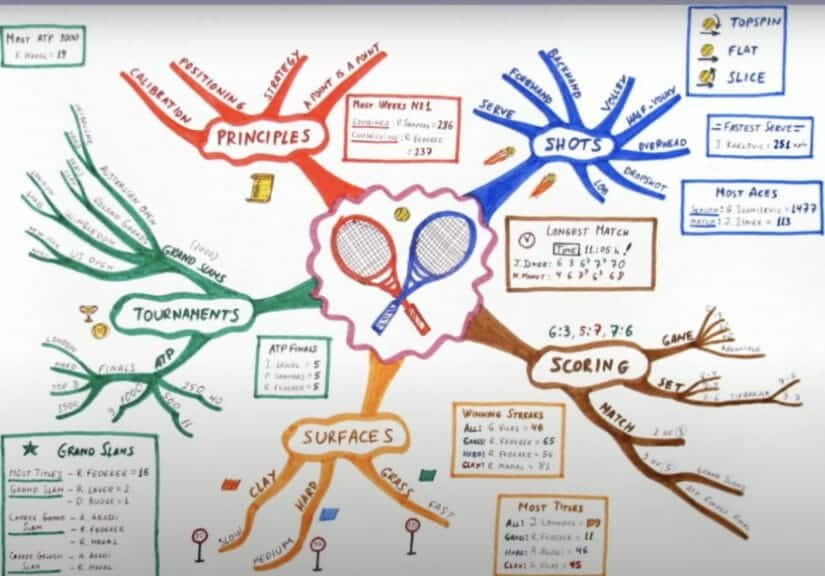 MOST ATP 1000
PRINCIPLES
CALIBRATION
POSITIONING
STRATEGY
A POINT IS A POINT
MOST WEEKS Nº1
= 286
= 237
SHOTS
SERVE
FOREHAND
BACKHAND
VOLLEY
HALF-VOLLEY
OVERHEAD
DROPSHOT
LOB
TOPSPIN
FLAT
SLICE
=FASTEST SERVE=
J. KARLOVIC = 251
MOST ACES
= 1477
MATCH: J. ISNER = 113
LONGEST MATCH
TIME 11:05 h!
TOURNAMENTS
GRAND SLAMS
AUSTRALIAN OPEN
ROLAND GARROS
WIMBLEDON
US OPEN
(2000)
ATP
FINALS
LONDON
HARD
TOP 8
1500
1000
9
500
11
250
40
ATP FINALS
I. LENDL = 5
P. SAMPRAS = 5
R. FEDERER = 5
SCORING
6:3, 5:7, 7:6
GAME
ADVANTAGE
SET
TIEBREAK
MATCH
2 OF 3
3 OF 5
GRAND SLAMS
SURFACES
CLAY
SLOW
HARD
MEDIUM
GRASS
FAST
WINNING STREAKS
ALL: G. VILAS = 46
GRASS: R. FEDERER = 65
HARD: R. FEDERER = 56
CLAY: R. NADAL = 81
MOST TITLES
ALL: J. CONNORS = 109
GRASS: R. FEDERER = 11
HARD: A. AGASSI = 46
CLAY: G. VILAS = 45
GRAND SLAMS
MOST TITLES - R. FEDERER = 16
GRAND SLAM - R. LAVER = 2
- D. BUDGE = 1
CAREER GRAND - A. AGASSI
SLAM - R. FEDERER
- R. NADAL
CAREER GOLDEN - A. AGASSI
SLAM - R. NADAL